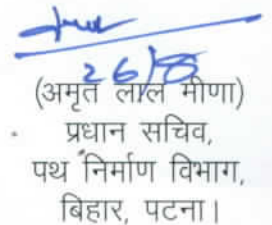 26/8
(अमृत लाल मीणा)
प्रधान सचिव,
पथ निर्माण विभाग,
बिहार, पटना।